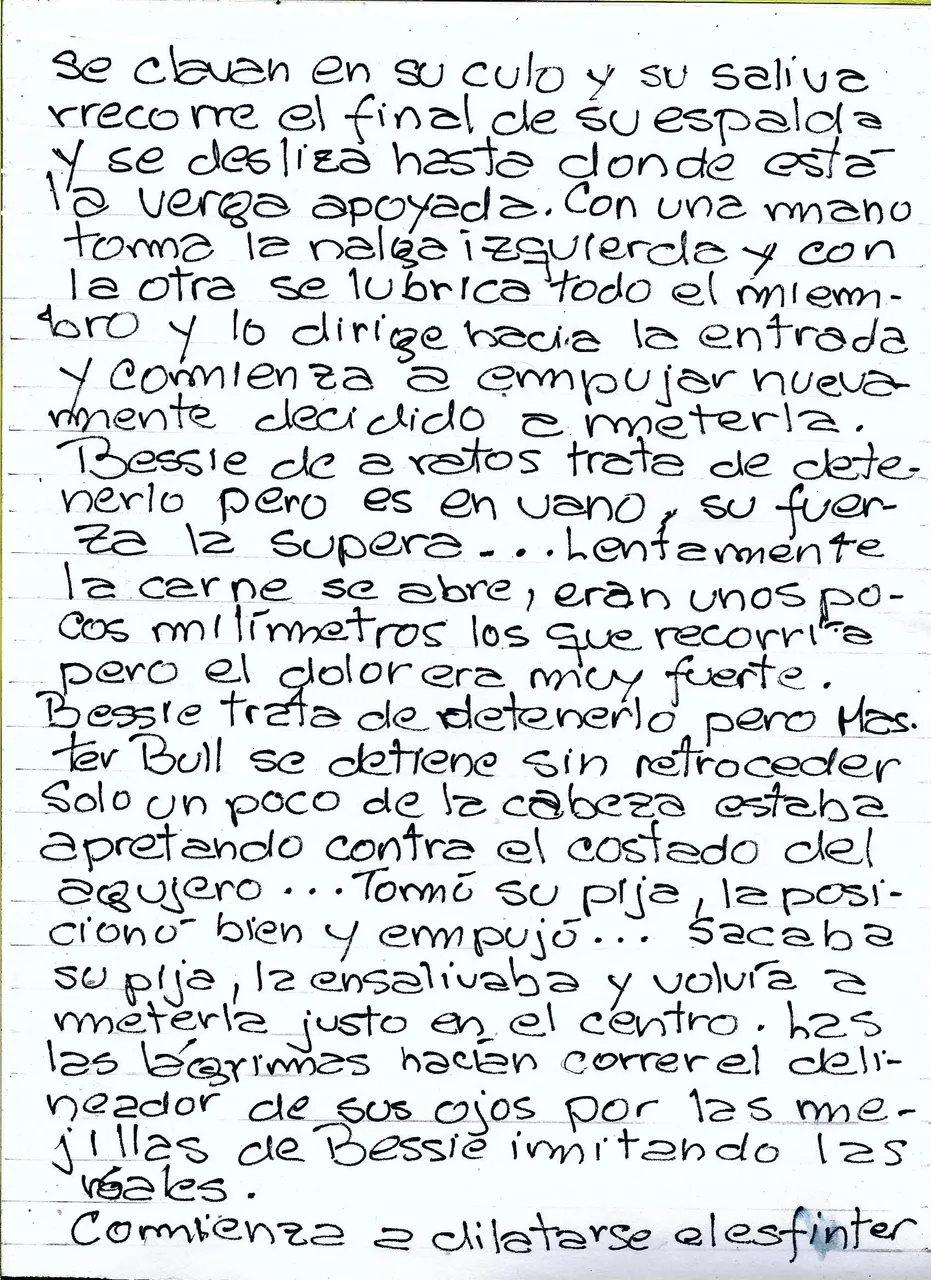 se clavan en su culo y su saliva
rrecorre el final de su espalda
y se desliza hasta donde está
la verga apoyada. Con una mano
toma la nalga izquierda y con
la otra se lubrica todo el miem-
bro y lo dirige hacia la entrada
y comienza a empujar nueva-
mente decidido a meterla.
Bessie de a ratos trata de dete-
nerlo pero es en vano, su fuer-
za la supera... Lentamente
la carne se abre, eran unos po-
cos milímetros los que recorría
pero el dolor era muy fuerte.
Bessie trata de detenerlo pero Mas-
ter Bull se detiene sin retroceder
Solo un poco de la cabeza estaba
apretando contra el costado del
agujero... Tomó su pija, la posi-
cionó bien y empujó... Sacaba
su pija, la ensalivaba y volvía a
meterla justo en el centro. Las
las lágrimas hacían correr el deli-
neador de sus ojos por las me-
jillas de Bessie imitando las
reales.
Comienza a dilatarse el esfinter